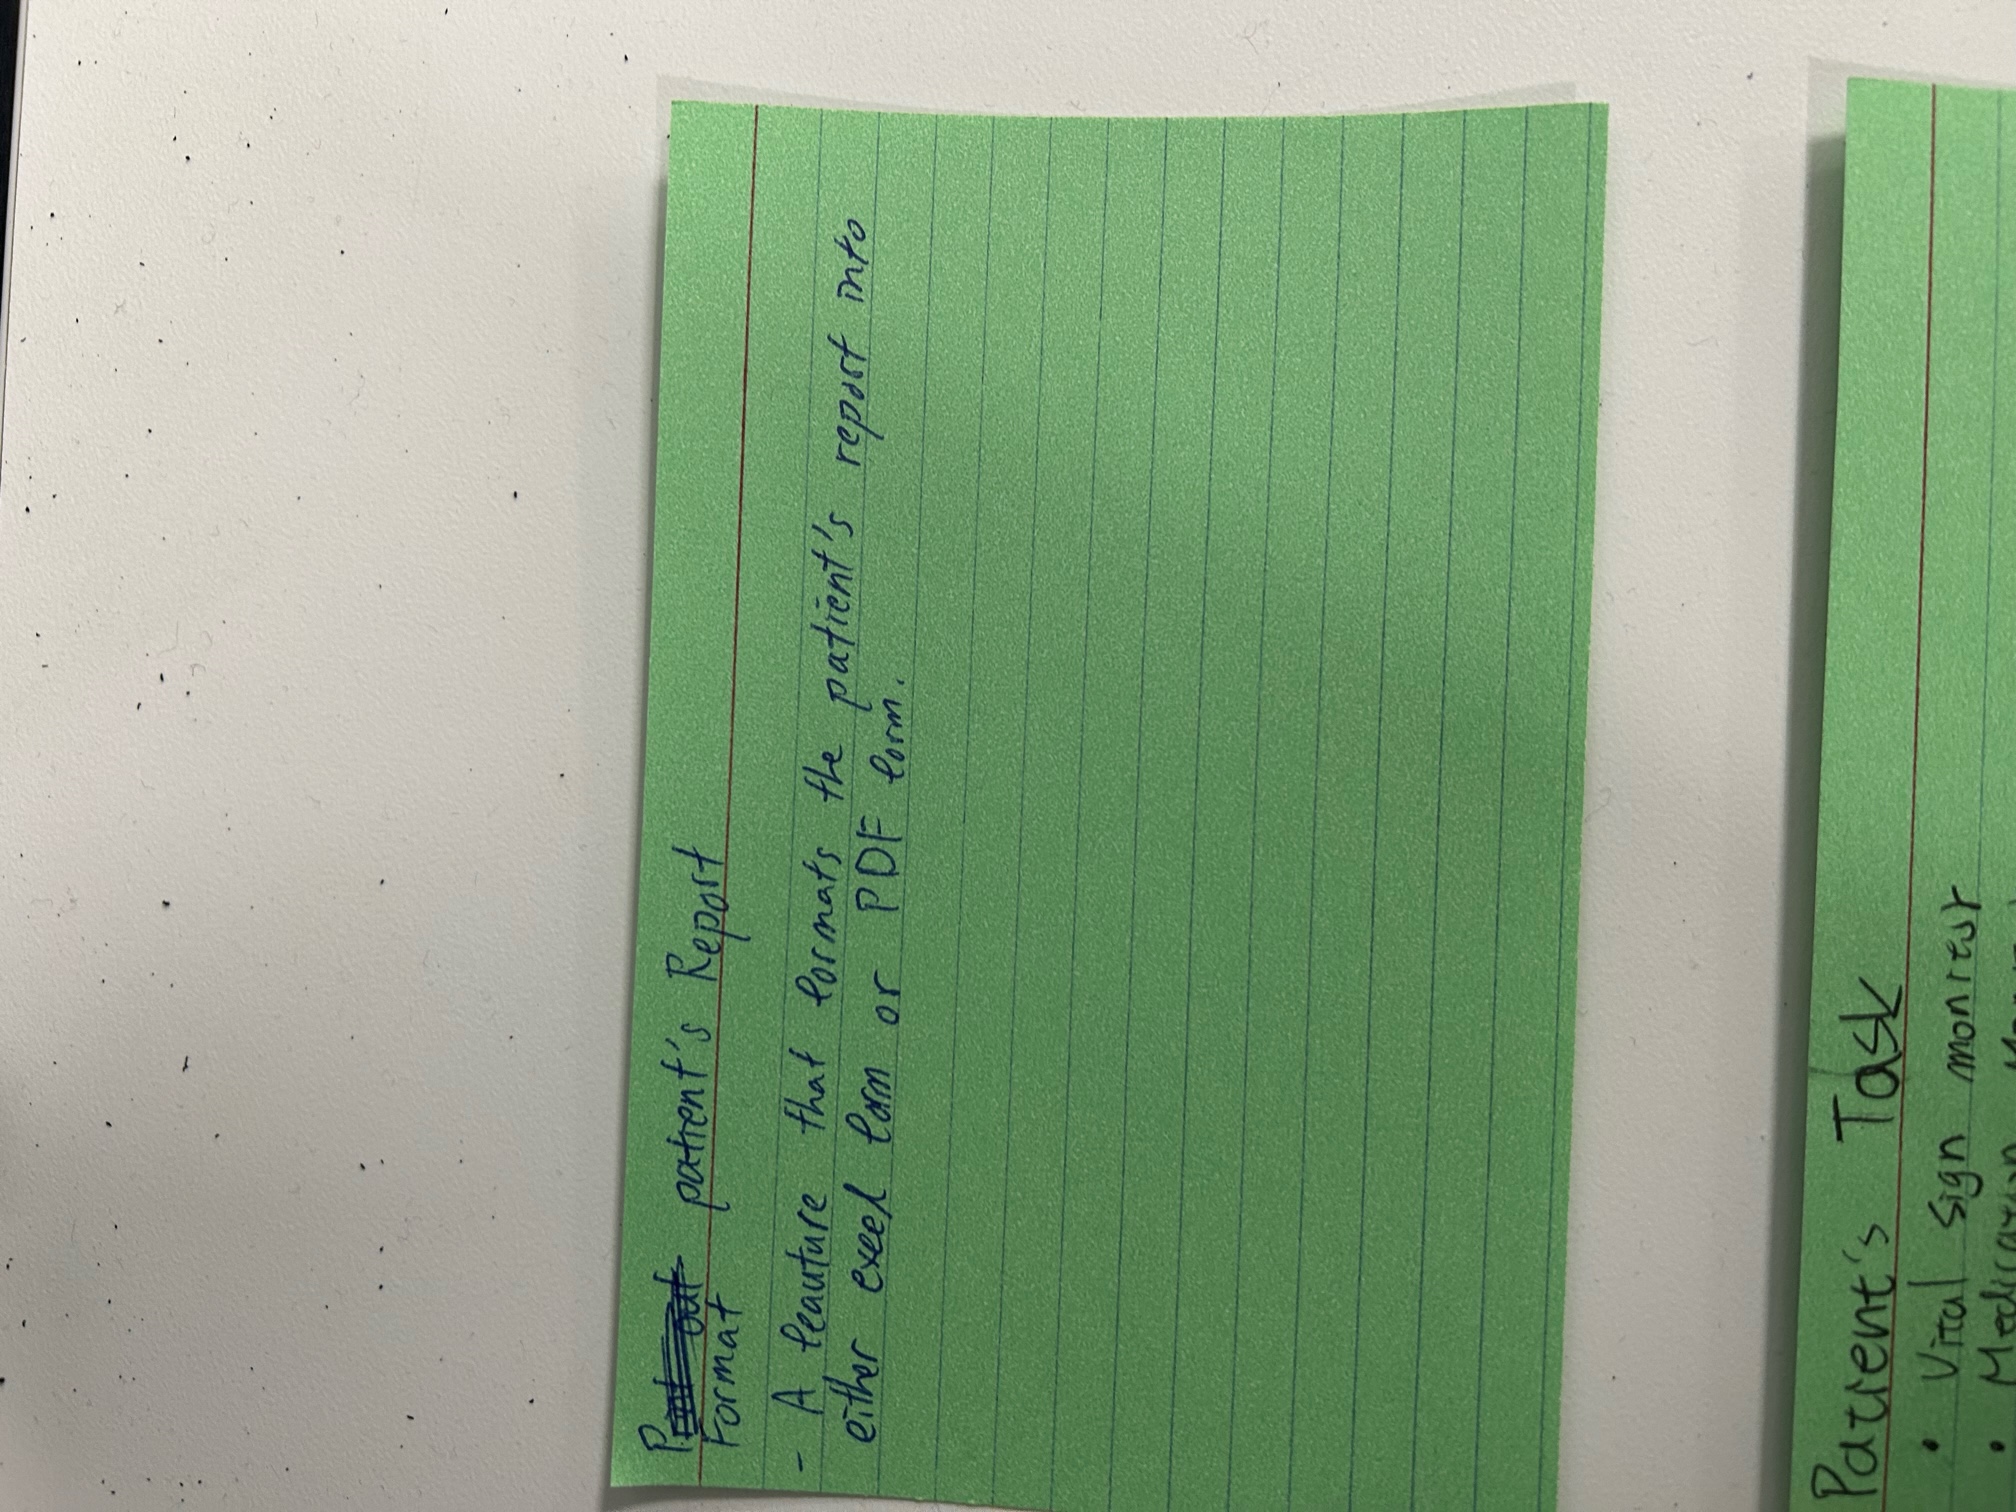 Print out patient's Report
Format
- A feauture that formats the patient's report into
either excel form or PDF form.
Patient's Task
• Vital sign monitor
• Medication